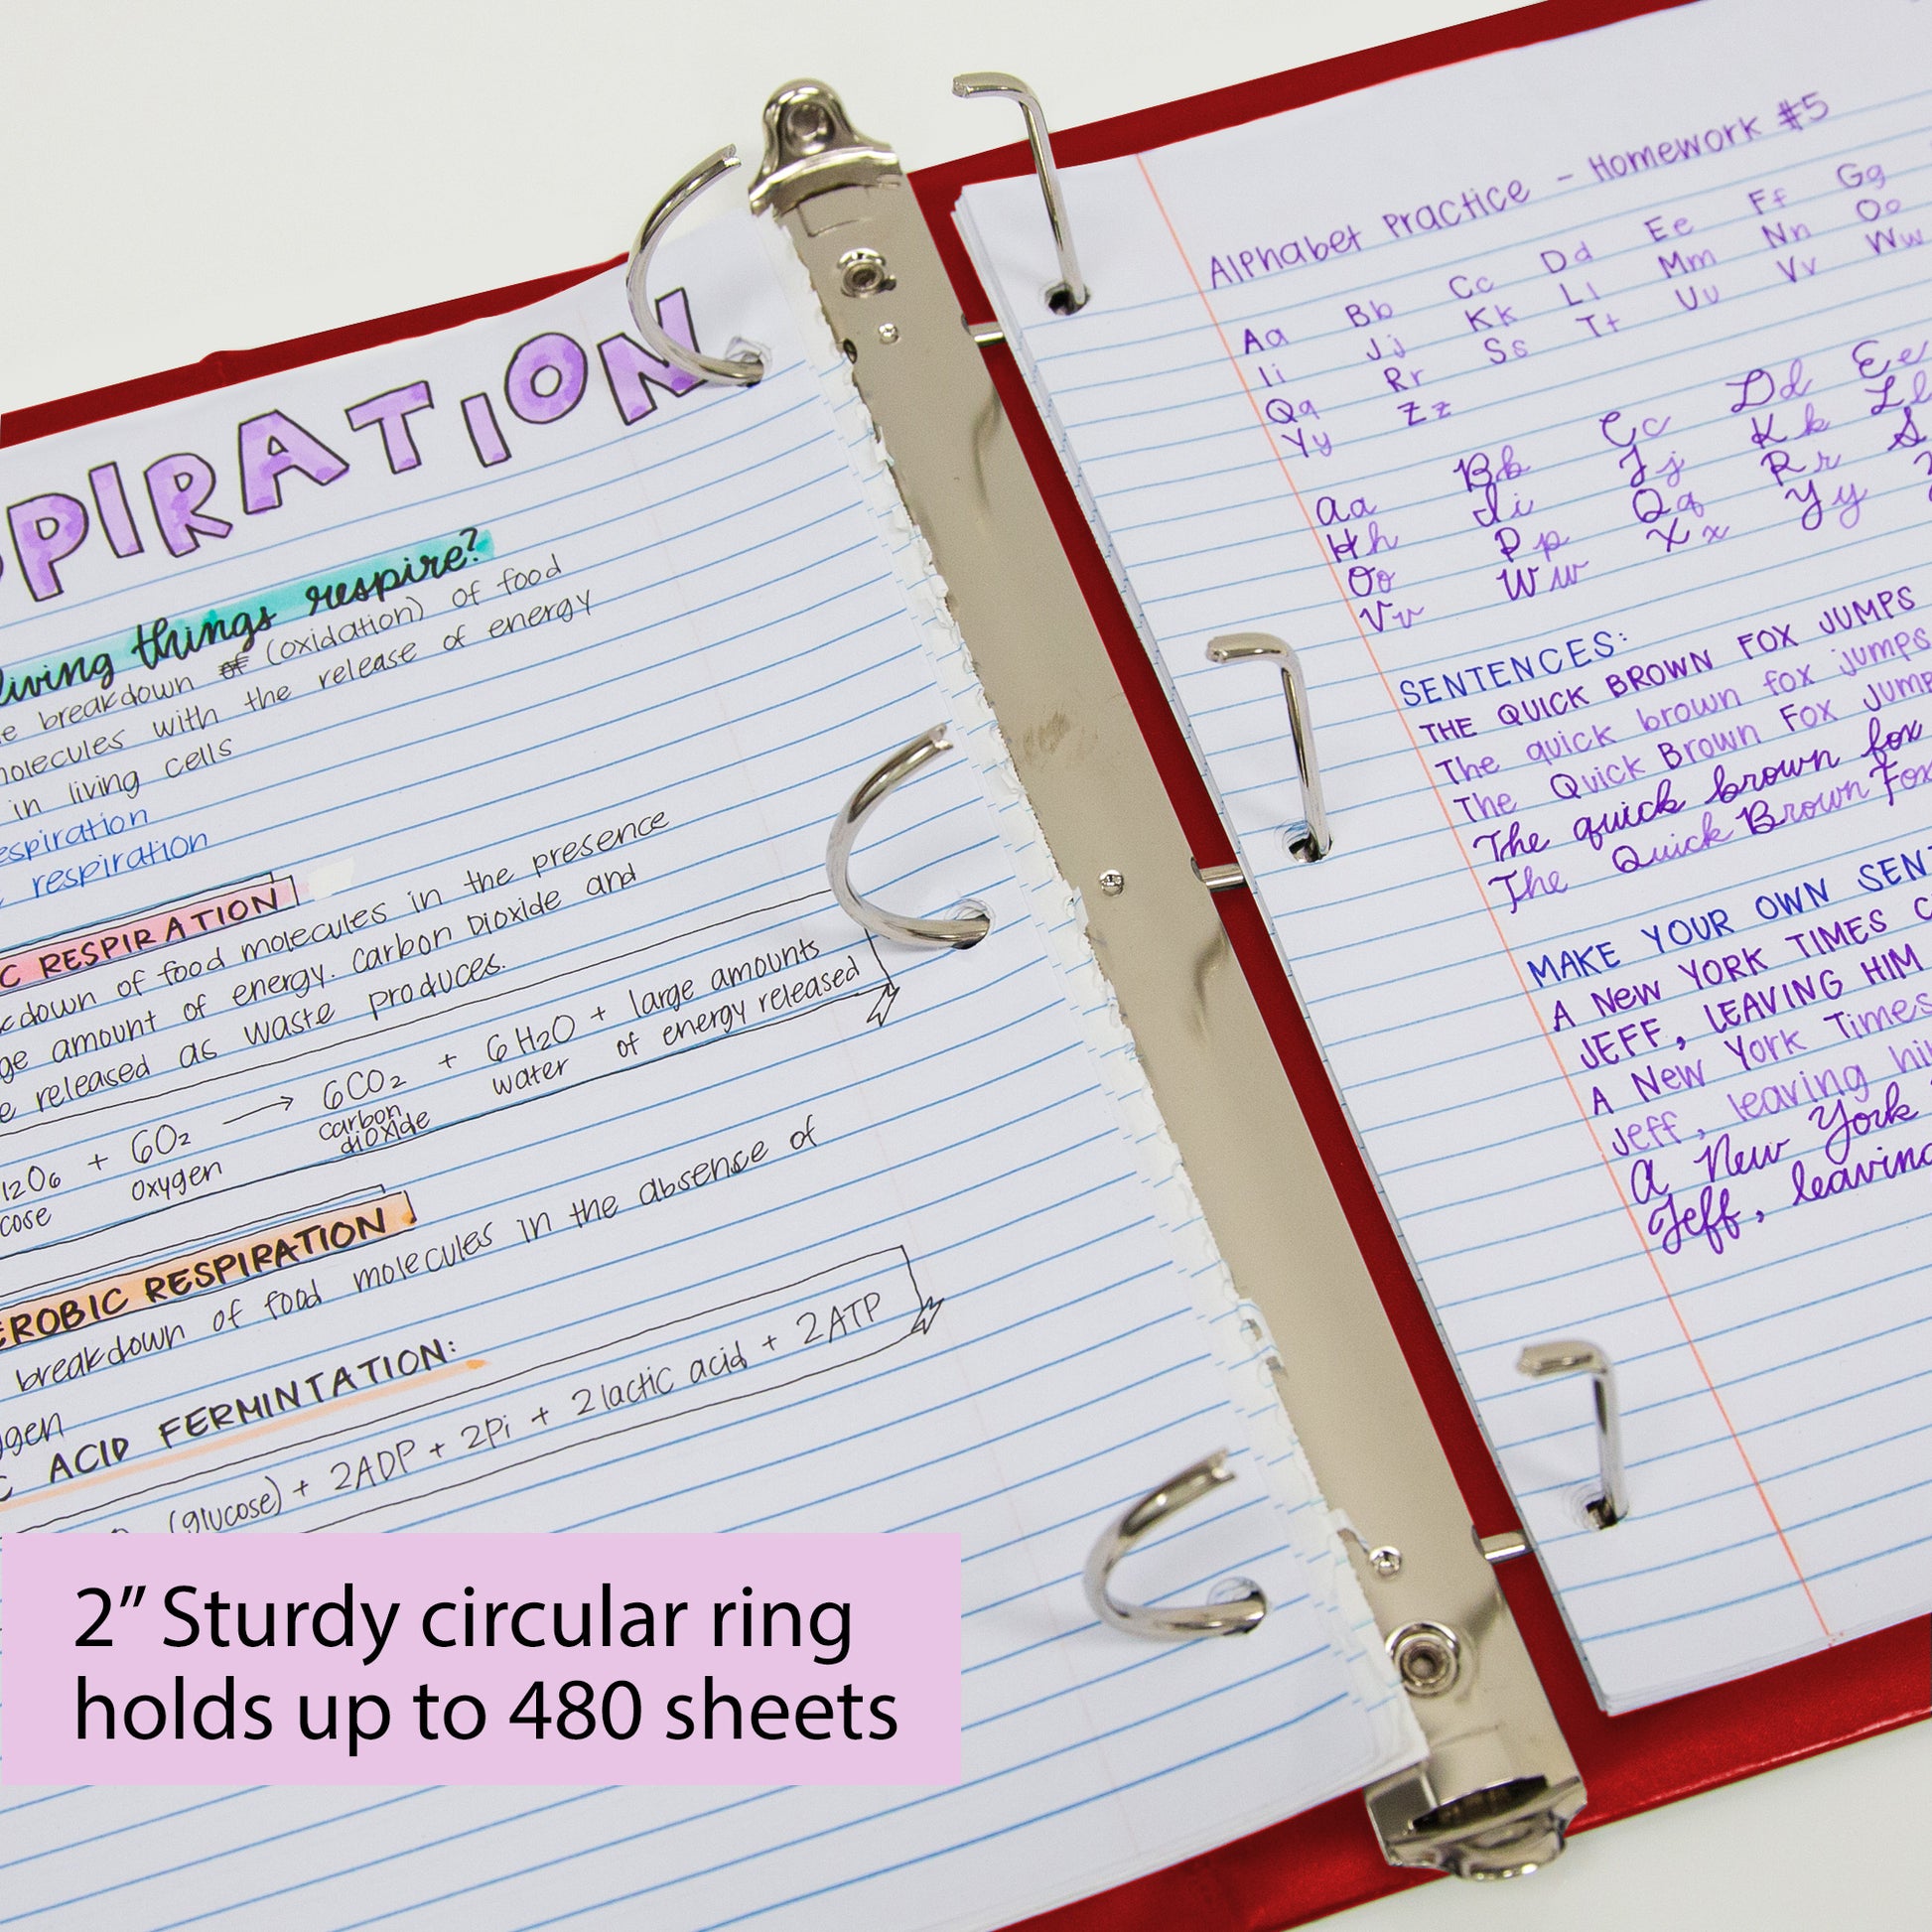 PIRATION
living things respire?
breakdown of (oxidation) of food
molecules with the release of energy
in living cells
respiration
respiration
C RESPIRATION
down of food molecules in the presence
amount of energy. Carbon Dioxide and
released as waste produces.
12O6 + 6O2 → 6CO2 + 6H2O + large amounts
oxygen carbon dioxide water of energy released
EROBIC RESPIRATION
breakdown of food molecules in the absence of
C ACID FERMINTATION:
(glucose) + 2ADP + 2Pi + 2 lactic acid + 2ATP
Alphabet Practice - Homework #5
Aa Bb Cc Dd Ee Ff Gg
Ii Jj Kk Ll Mm Nn Oo
Qq Rr Ss Tt Uu Vv Ww
Yy Zz
Aa Bb Cc Dd Ee
Hh Ii Jj Kk Ll
Oo Pp Qq Rr S
Vv Ww Xx Yy
SENTENCES:
THE QUICK BROWN FOX JUMPS
The quick brown fox jumps
The Quick Brown Fox Jump
The quick brown fox
The Quick Brown Fox
MAKE YOUR OWN SENT
A NEW YORK TIMES C
JEFF, LEAVING HIM
A New York Times
Jeff, leaving hi
A New York
Jeff, leaving
2” Sturdy circular ring
holds up to 480 sheets